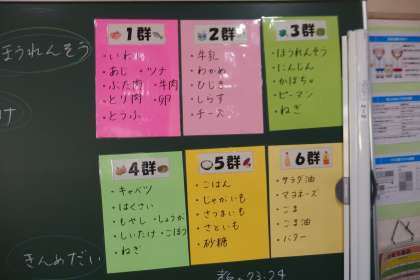 ほうれんそう
け
きんめだい
1群
・いわし
・あじ ・ツナ
・ぶた肉 ・牛肉
・とり肉 ・卵
・とうふ
2群
・牛乳
・わかめ
・ひじき
・しらす
・チーズ
3群
・ほうれんそう
・にんじん
・かぼちゃ
・ピーマン
・ねぎ
4群
・キャベツ
・はくさい
・もやし ・しょうが
・しいたけ ・ごぼう
・ねぎ
5群
・ごはん
・じゃがいも
・さつまいも
・さといも
・砂糖
6群
・サラダ油
・マヨネーズ
・ごま
・ごま油
・バター
23.24